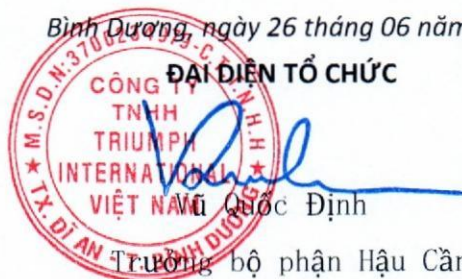 Bình Dương, ngày 26 tháng 06 năm
ĐẠI DIỆN TỔ CHỨC
CÔNG TY
TNHH
TRIUMPH
INTERNATIONAL
VIỆT NAM
TX. DĨ AN - T. BÌNH DƯƠNG
Vũ Quốc Định
Trưởng bộ phận Hậu Cần